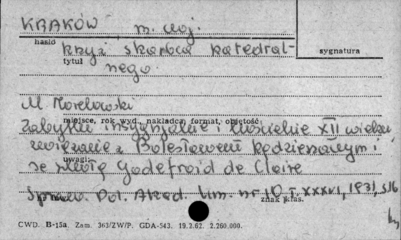 KRAKÓW m. woj.
hasło krzyż skarbca katedral- sygnatura
tytuł nego
M. Morelowski
miejsce, rok wyd., nakładca, format, objętość
Zabytki insygnialne i kościelne XII wieku
związane z Bolesławem Kędzierzawym i
uwagi
ze szkołą Godefroid de Claire
Spraw. Pol. Akad. Um. nr 10 T. XXXVI, 1931, s16
znak p.fas.
CWD. B-15a. Zam. 361/ZW/P. GDA-543. 19.2.62. 2.260.000.